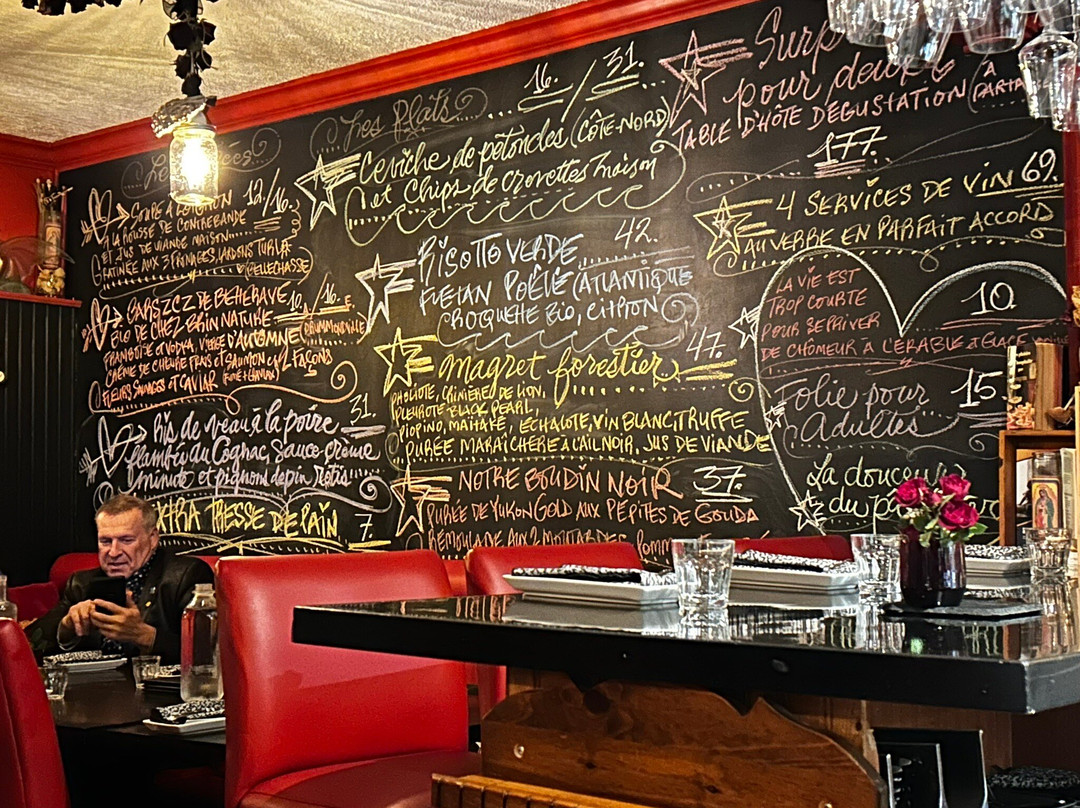 SOUPE À L'OIGNON 12/16.
À LA ROUSSE DE CONTREBANDE
ET JUS DE VIANDE MAISON
GRATINÉE AUX 3 FROMAGES, LARDONS TURLO
BELLECHASSE
BARSZCZ DE BETTERAVE 10/16.
BIO DE CHEZ BRIN NATURE
DRUMMONDVILLE
FRAMBOISE ET VODKA, VIERGE D'AUTOMNE
CRÈME DE CHÈVRE FRAIS ET SAUMON 2 FAÇONS
FLEURS SAUVAGES ET CAVIAR
Ris de veau à la poire 31.
flambé au Cognac, Sauce crème
minute et pignons de pin rôtis
XTRA TRESSE DE PAIN 7.
Les Plats
16. / 31.
Ceviche de pétoncles (CÔTE-NORD)
et Chips de crevettes maison
RISOTTO VERDE 42.
FLÉTAN POÊLÉ (ATLANTIQUE
CROQUETTE BIO, CITRON
Magret forestier 47.
PHOLIOTE, CRINIÈRE DE LION,
PLEUROTE BLACK PEARL,
PIOPINO, MAITAKE, ECHALOTE, VIN BLANC, TRUFFE
PURÉE MARAICHÈRE À L'AIL NOIR, JUS DE VIANDE
NOTRE BOUDIN NOIR 37.
PURÉE DE YUKON GOLD AUX PÉPITES DE GOUDA
RÉMOULADE AUX 2 MOUTARDES
Surp
pour deux
TABLE D'HÔTE DÉGUSTATION (À
PARTA
177.
4 SERVICES DE VIN 69.
AU VERRE EN PARFAIT ACCORD
LA VIE EST
TROP COURTE 10
POUR SE PRIVER
DE CHÔMEUR À L'ÉRABLE & GLACE
Folie pour 15
Adultes
La douceur
du